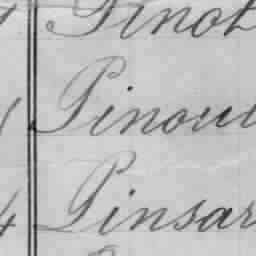 Pinot
Pinoul
4 Pinsar